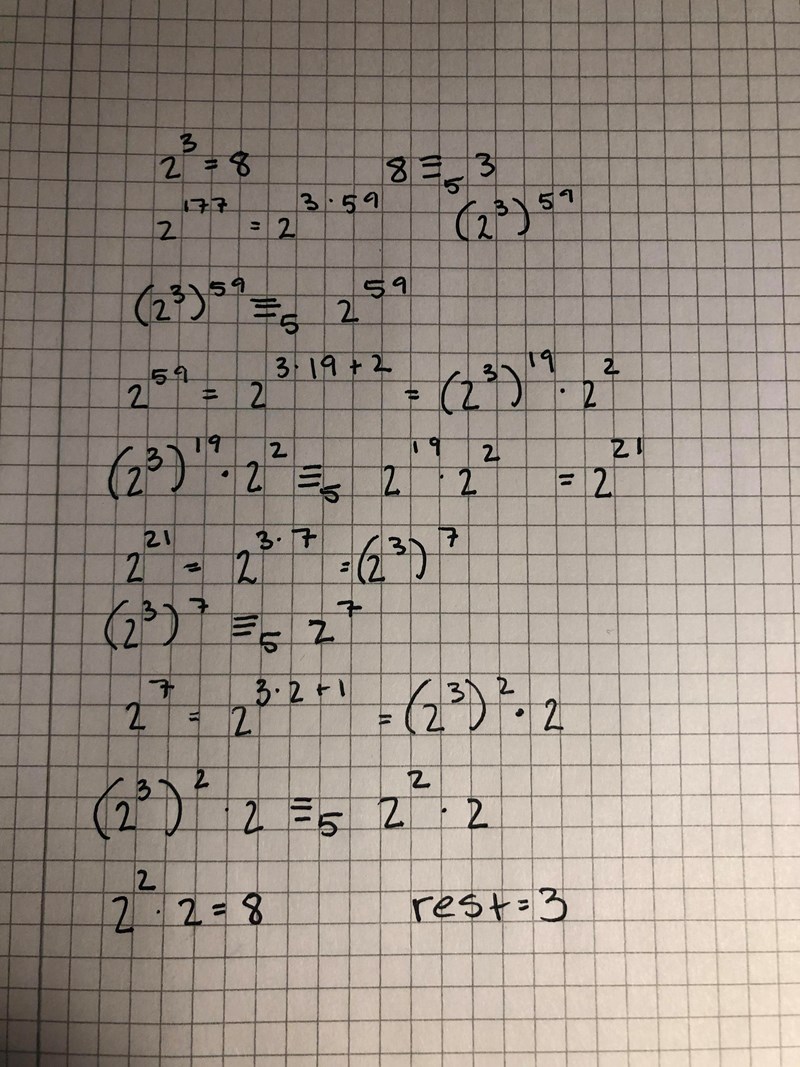 2³ = 8 8 ≡₅ 3
2¹⁷⁷ = 2³·⁵⁹ (2³)⁵⁹
(2³)⁵⁹ ≡₅ 2⁵⁹
2⁵⁹ = 2³·¹⁹⁺² = (2³)¹⁹ · 2²
(2³)¹⁹ · 2² ≡₅ 2¹⁹ · 2² = 2²¹
2²¹ = 2³·⁷ = (2³)⁷
(2³)⁷ ≡₅ 2⁷
2⁷ = 2³·²⁺¹ = (2³)² · 2
(2³)² · 2 ≡₅ 2² · 2
2² · 2 = 8 rest = 3